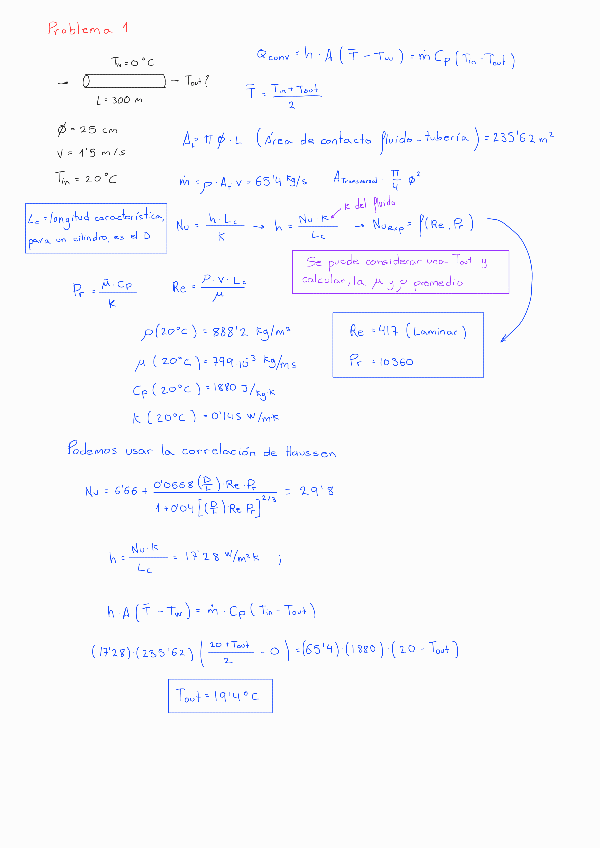 Problema 1
Tw=0°C
Tout?
L=300 m
Qconv = h·A (T̄ - Tw) = ṁ Cp (Tin - Tout)
T̄ = (Tin + Tout)/2
ϕ = 25 cm
v = 1'5 m/s
Tin = 20°C
A = π ϕ · L (Área de contacto fluido-tubería) = 235'62 m²
ṁ = ρ · A · v = 65'4 kg/s A Transversal π/4 ϕ²
Lc = longitud característica,
para un cilindro, es el D.
Nu = h·Lc/K → h = Nu·K/Lc → Nu exp = f(Re, Pr)
K del fluido
Se puede considerar una Tout y
calcular, la μ y ρ promedio
Pr = μ·Cp/K Re = ρ·v·Lc/μ
ρ (20°C) = 888'2 kg/m³
μ (20°C) = 799·10⁻³ kg/ms
Cp (20°C) = 1880 J/kg·K
K (20°C) = 0'145 W/m·K
Re = 417 (Laminar)
Pr = 10360
Podemos usar la correlación de Haussen
Nu = 6'66 + 0'0668 (D/L) Re·Pr / 1+0'04 [(D/L) Re Pr]^2/3 = 29'8
h = Nu·K/Lc = 17'28 W/m²K ;
h A (T̄ - Tw) = ṁ · Cp (Tin - Tout)
(17'28)·(235'62) ((20+Tout)/2 - 0) = (65'4)·(1880)·(20 - Tout)
Tout = 19'4°C